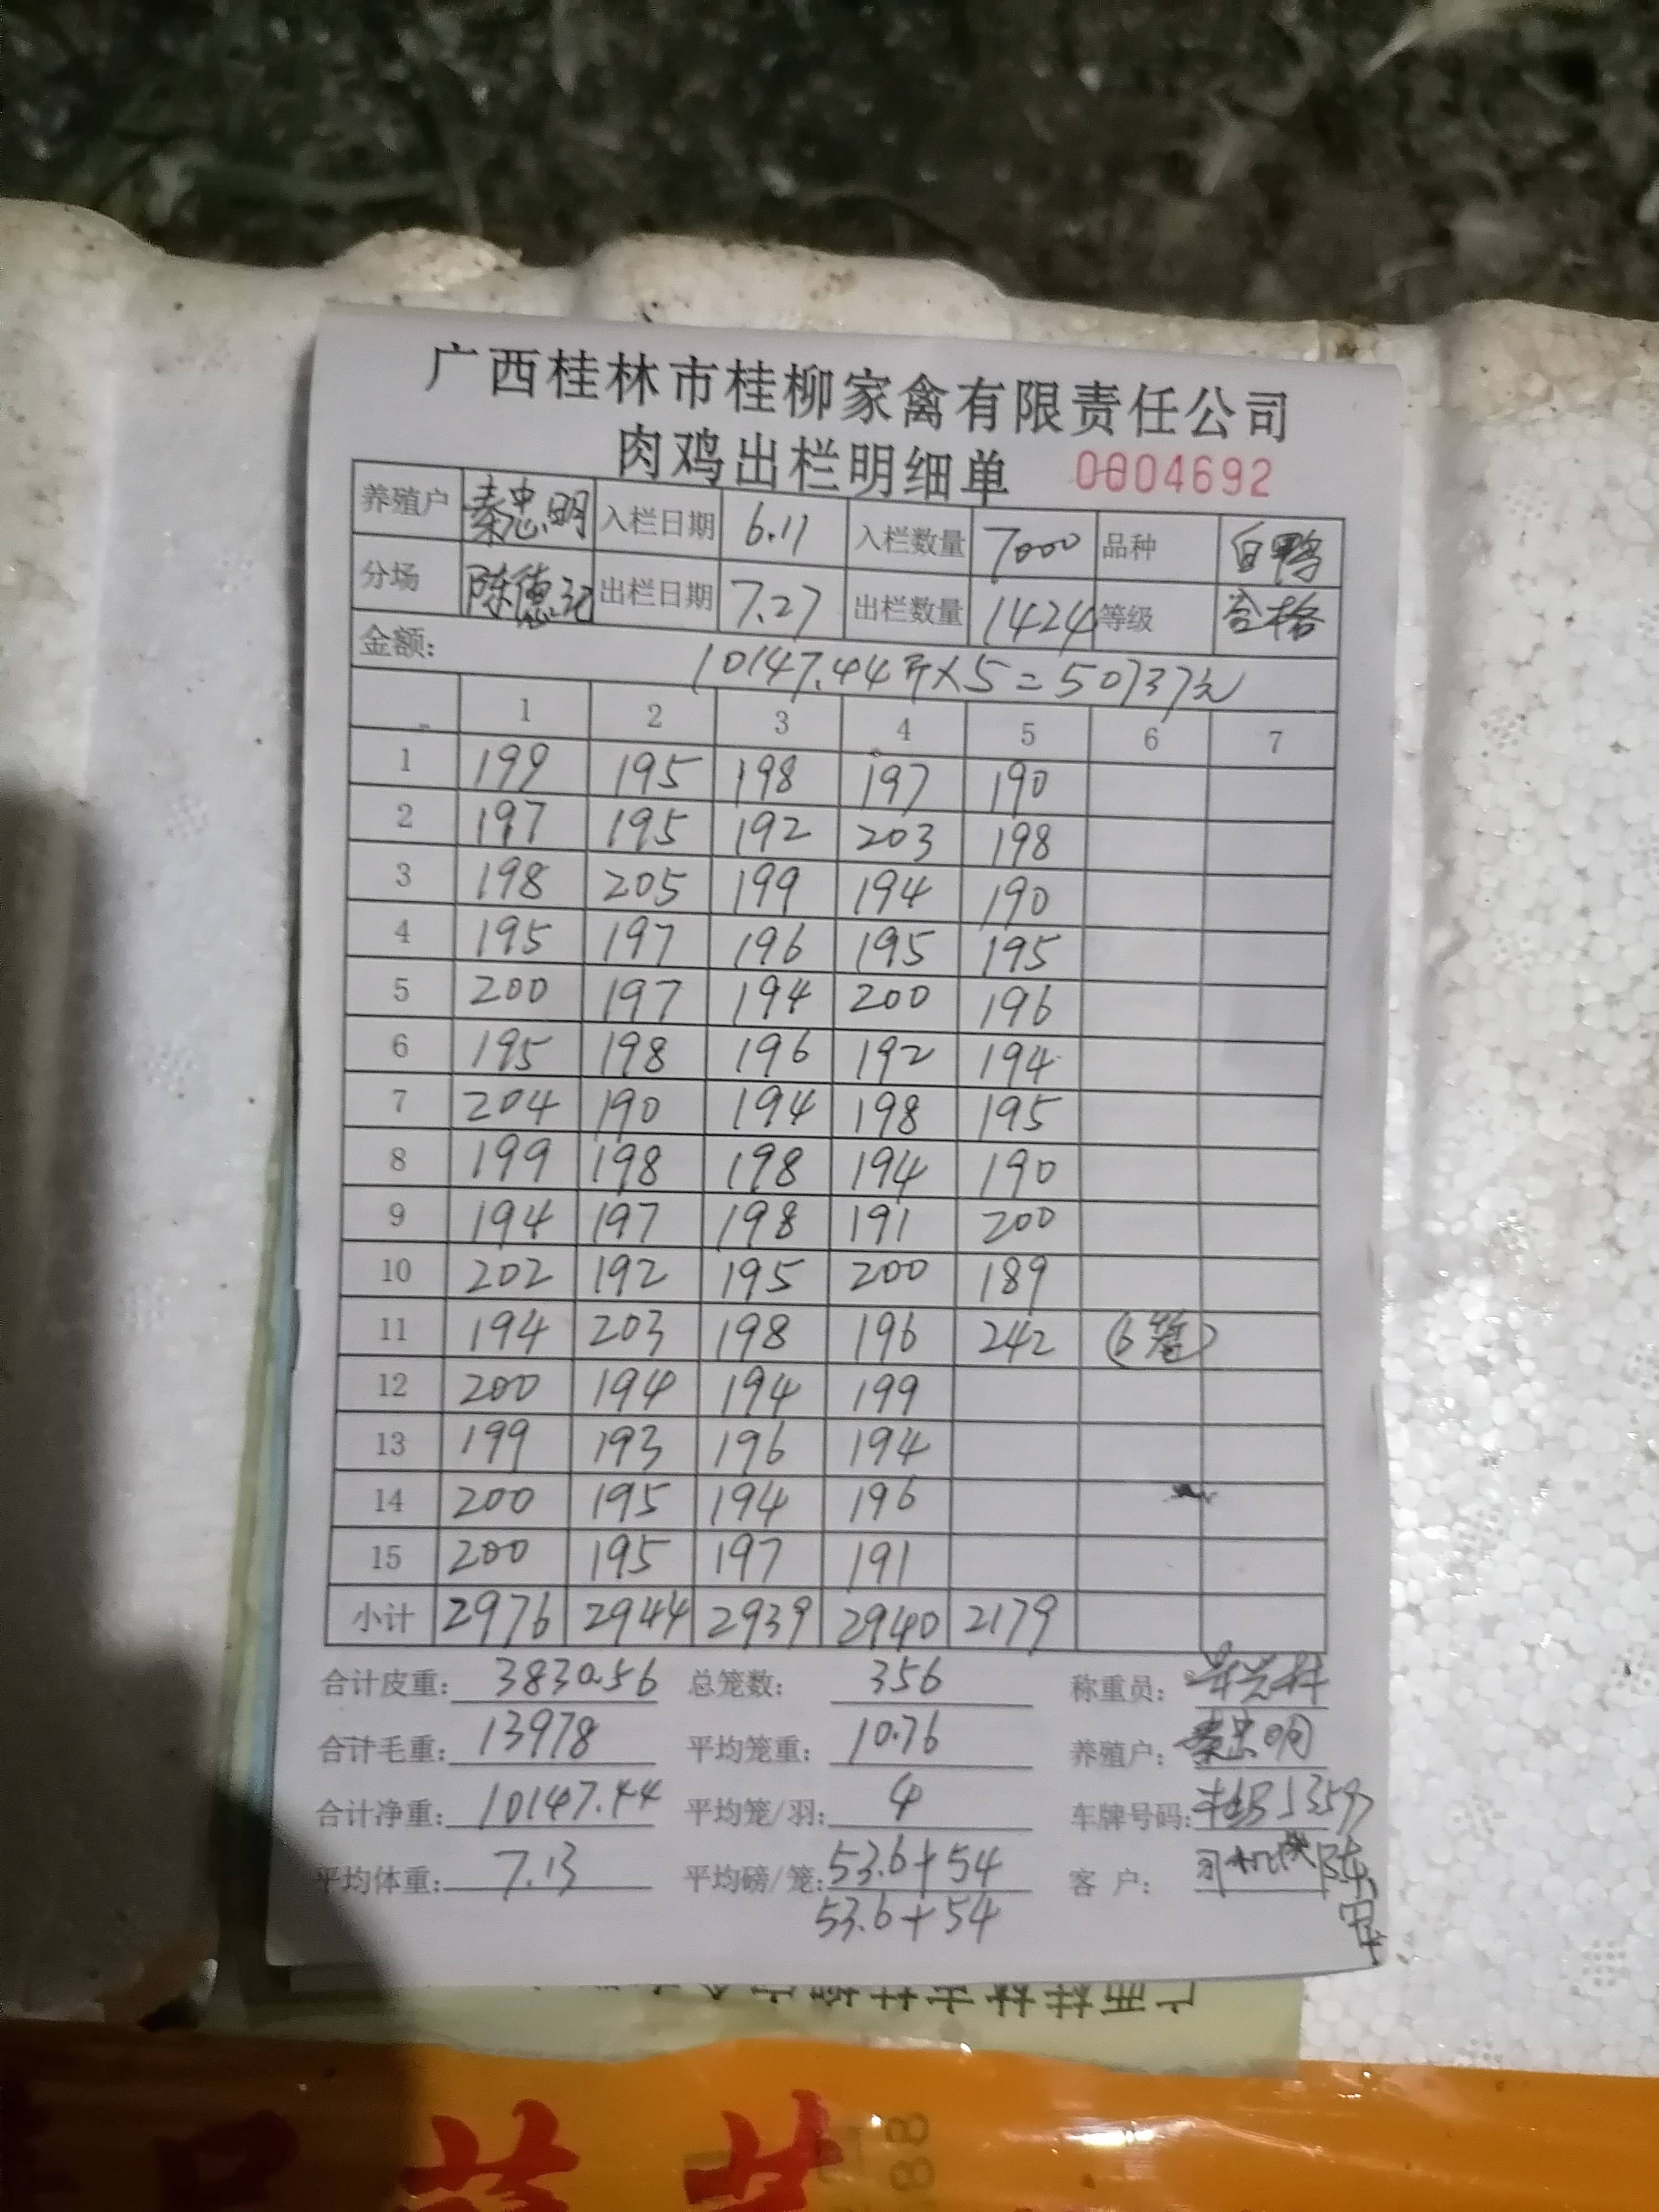 广西桂林市桂柳家禽有限责任公司
肉鸡出栏明细单 0004692
养殖户 秦忠明 入栏日期 6.11 入栏数量 7000 品种 白鸭
分场 陈德记 出栏日期 7.27 出栏数量 1424 等级 合格
金额: 10147.44斤×5=50737元
1 2 3 4 5 6 7
1 199 195 198 197 190
2 197 195 192 203 198
3 198 205 199 194 190
4 195 197 196 195 195
5 200 197 194 200 196
6 195 198 196 192 194
7 204 190 194 198 195
8 199 198 198 194 190
9 194 197 198 191 200
10 202 192 195 200 189
11 194 203 198 196 242 (6笼)
12 200 194 194 199
13 199 193 196 194
14 200 195 194 196
15 200 195 197 191
小计 2976 2944 2939 2940 2179
合计皮重: 3830.56 总笼数: 356 称重员:
合计毛重: 13978 平均笼重: 10.76 养殖户: 秦忠明
合计净重: 10147.44 平均笼/羽: 4 车牌号码:
平均体重: 7.13 平均磅/笼: 53.6+54 客户: 司机
53.6+54